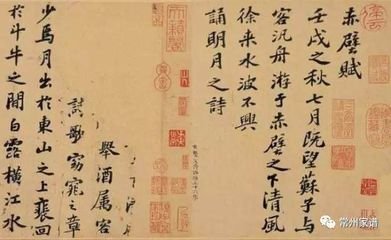 赤壁賦
壬戌之秋七月既望蘇子與
客汎舟游于赤壁之下清風
徐来水波不興
誦明月之詩
舉酒属客
歌窈窕之章
少焉月出於東山之上裵回
於斗牛之間白露橫江水
常州家谱